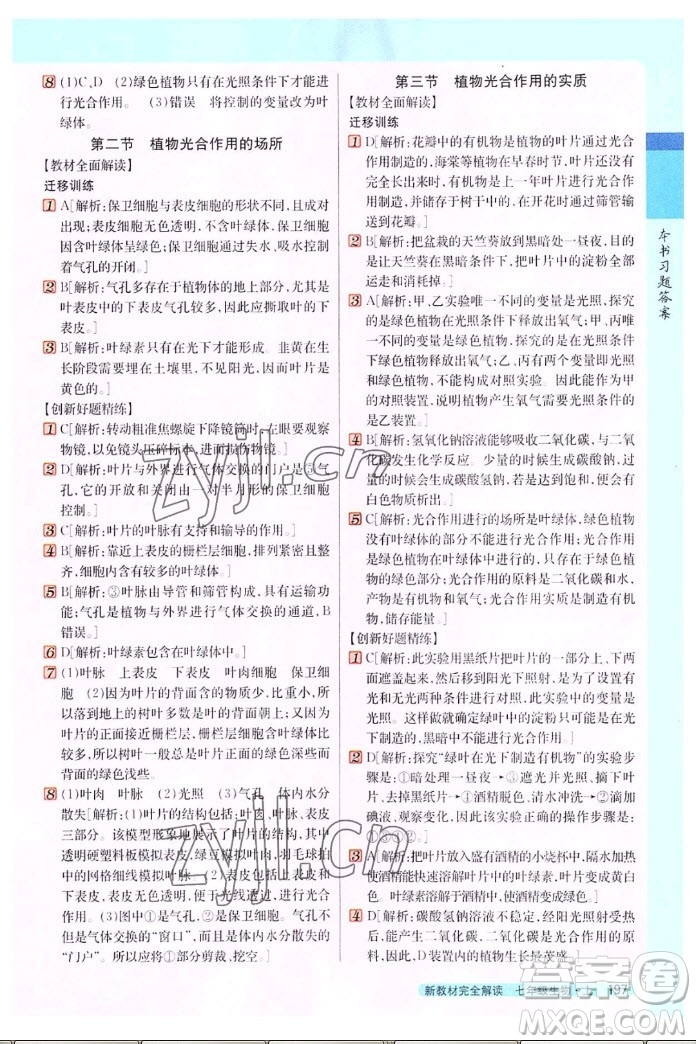 8 (1)C、D (2)绿色植物只有在光照条件下才能进
行光合作用。 (3)错误 将控制的变量改为叶
绿体。
第二节 植物光合作用的场所
【教材全面解读】
迁移训练
1 A[解析:保卫细胞与表皮细胞的形状不同,且成
对出现;表皮细胞无色透明,不含叶绿体,保卫细胞
因含叶绿体呈绿色;保卫细胞通过失水、吸水控制
着气孔的开闭。]
2 B[解析:气孔多存在于植物体的地上部分,尤其是
叶表皮中的下表皮气孔较多,因此应撕取叶的下
表皮。]
3 B[解析:叶绿素只有在光下才能形成。韭黄在生
长阶段需要埋在土壤里,不见阳光,因而叶片是
黄色的。]
【创新好题精练】
1 C[解析:转动粗准焦螺旋下降镜筒时,眼睛要观察
物镜,以免镜头压碎标本,进而损伤物镜。]
2 D[解析:叶片与外界进行气体交换的门户是⑤气
孔,它的开放和关闭由一对半月形的保卫细胞
控制。]
3 C[解析:叶片的叶脉有支持和输导的作用。]
4 B[解析:靠近上表皮的栅栏层细胞,排列紧密且含
有较多的叶绿体。]
5 B[解析:③叶脉由导管和筛管构成,具有运输功
能;气孔是植物与外界进行气体交换的通道,B
错误。]
6 D[解析:叶绿素包含在叶绿体中。]
7 (1)叶脉 上表皮 下表皮 叶肉细胞 保卫细
胞 (2)因为叶片的背面含的物质少,比重小,所
以落到地上的树叶多数是叶的背面朝上;因为叶
片的正面接近栅栏层,栅栏层细胞含的叶绿体多,
所以树叶一般总是叶片正面的绿色深些而下面
的绿色浅些
8 (1)叶肉 叶脉 (2)光照 (3)气孔 体内水分
散失[解析:(1)叶片的结构包括:叶肉、叶脉、表皮
三部分。该模型形象地展示了叶片的结构:两片透
明硬塑料板模拟表皮,绿豆模拟叶肉,羽毛球拍
中的网格细线模拟叶脉。(2)表皮分为上表皮和下
表皮,表皮无色透明,不含叶绿体,便于光照透过供
叶肉利用。(3)图中①是气孔,②是保卫细胞。气孔不
但是气体交换的“窗口”,而且是体内水分散失的
“门户”。所以应将①部分剪裁,挖空。]
第三节 植物光合作用的实质
【教材全面解读】
迁移训练
1 D[解析:花瓣中的有机物是植物的叶片通过光合
作用制造的,海棠等植物在早春时节,叶片还没有
完全长出来,有机物是上一年叶片进行光合作用
制造,并储存于树干中的,在开花时通过筛管输送
到花瓣。]
2 B[解析:把盆栽的天竺葵放到黑暗处一昼夜,目的
是让天竺葵在黑暗条件下,把叶片中的淀粉全部
运走和消耗掉。]
3 A[解析:甲、乙实验唯一不同的变量是光照,探究
的是光是否是绿色植物释放出氧气;甲、丙的变量
是绿色植物,探究的是在光下能否产生氧气;而乙、
丙有两个变量,不能构成对照实验。因此能作为甲
的对照实验,说明植物产生氧气需要光照条件的
是乙装置。]
4 B[解析:氢氧化钠溶液能够吸收二氧化碳,与二氧
化碳发生化学反应。少量的时候生成碳酸钠,过
量的时候生成碳酸氢钠,碳酸氢钠会以白色晶体
的物质析出。]
5 C[解析:光合作用进行的场所是叶绿体,绿色植物
没有叶绿体的部分不能进行光合作用,更不能说
是在植物的绿色部分进行,如植物的绿色部分也可能
是绿色部分;光合作用的原料是二氧化碳和水,产物
是有机物和氧气,光合作用的实质是制造有机
物,储存能量。]
【创新好题精练】
1 C[解析:此实验用黑纸片把叶片的一部分上、下两
面遮盖起来,然后移到阳光下照射,目的是设置有
光和无光两种条件进行对照,此实验中的变量是
光照。这样做就能确定绿叶中的淀粉只能在光
下制造的,黑暗中不能进行光合作用。]
2 D[解析:“绿叶在光下制造有机物”的实验方法步
骤是:①暗处理一昼夜→③遮光并光照,摘下叶
片→①酒精脱色→②漂洗叶片后,滴加碘
液,观察变化,因此,实验的正确步骤是:
3 A[解析:把叶片放入盛有酒精的小烧杯中,隔水加热,
叶绿素溶解于酒精中,酒精逐渐变成绿色。]
4 D[解析:碳酸氢钠溶液不稳定,经阳光照射受热
后,能产生二氧化碳,二氧化碳是光合作用的
原料。]
本书习题答案
新教材完全解读 七年级生物·上 197
zyjl.cn
zyjl.cn
答案圈
MXQE.COM